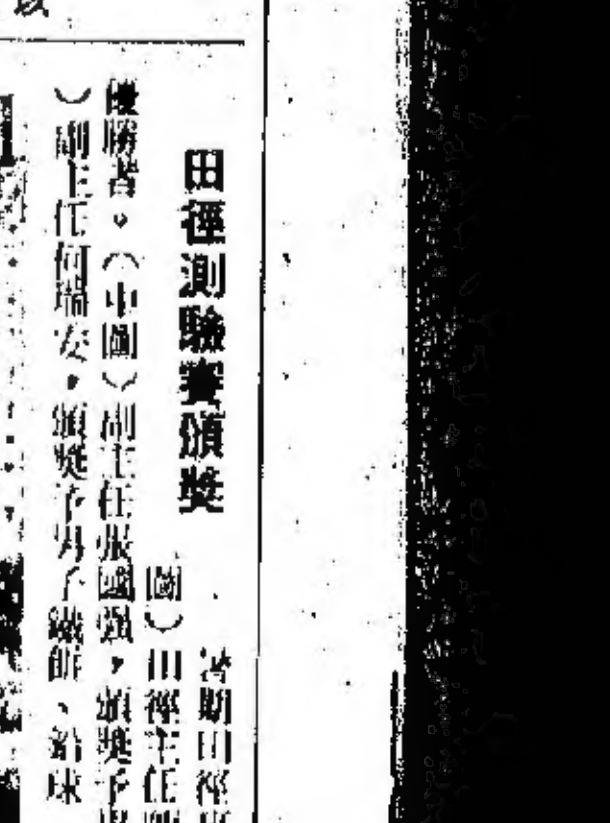 田徑測驗賽頒獎
暑期田徑
圖）田徑主任
優勝者。（中圖）副主任張國強，頒獎予
）副主任何瑞安，頒獎予男子鐵餅、鉛球